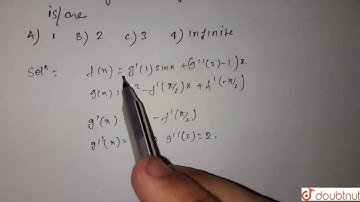 is/are
A) 1 B) 2 C) 3 4) Infinite
Solⁿ: f(x) = g'(1) sinx + (g''(2)-1)x
g(x) = - f'(π/2)x + f'(-π/2)
g'(x) = - f'(π/2)
g''(x) = g''(2) = 2.
doubtnut